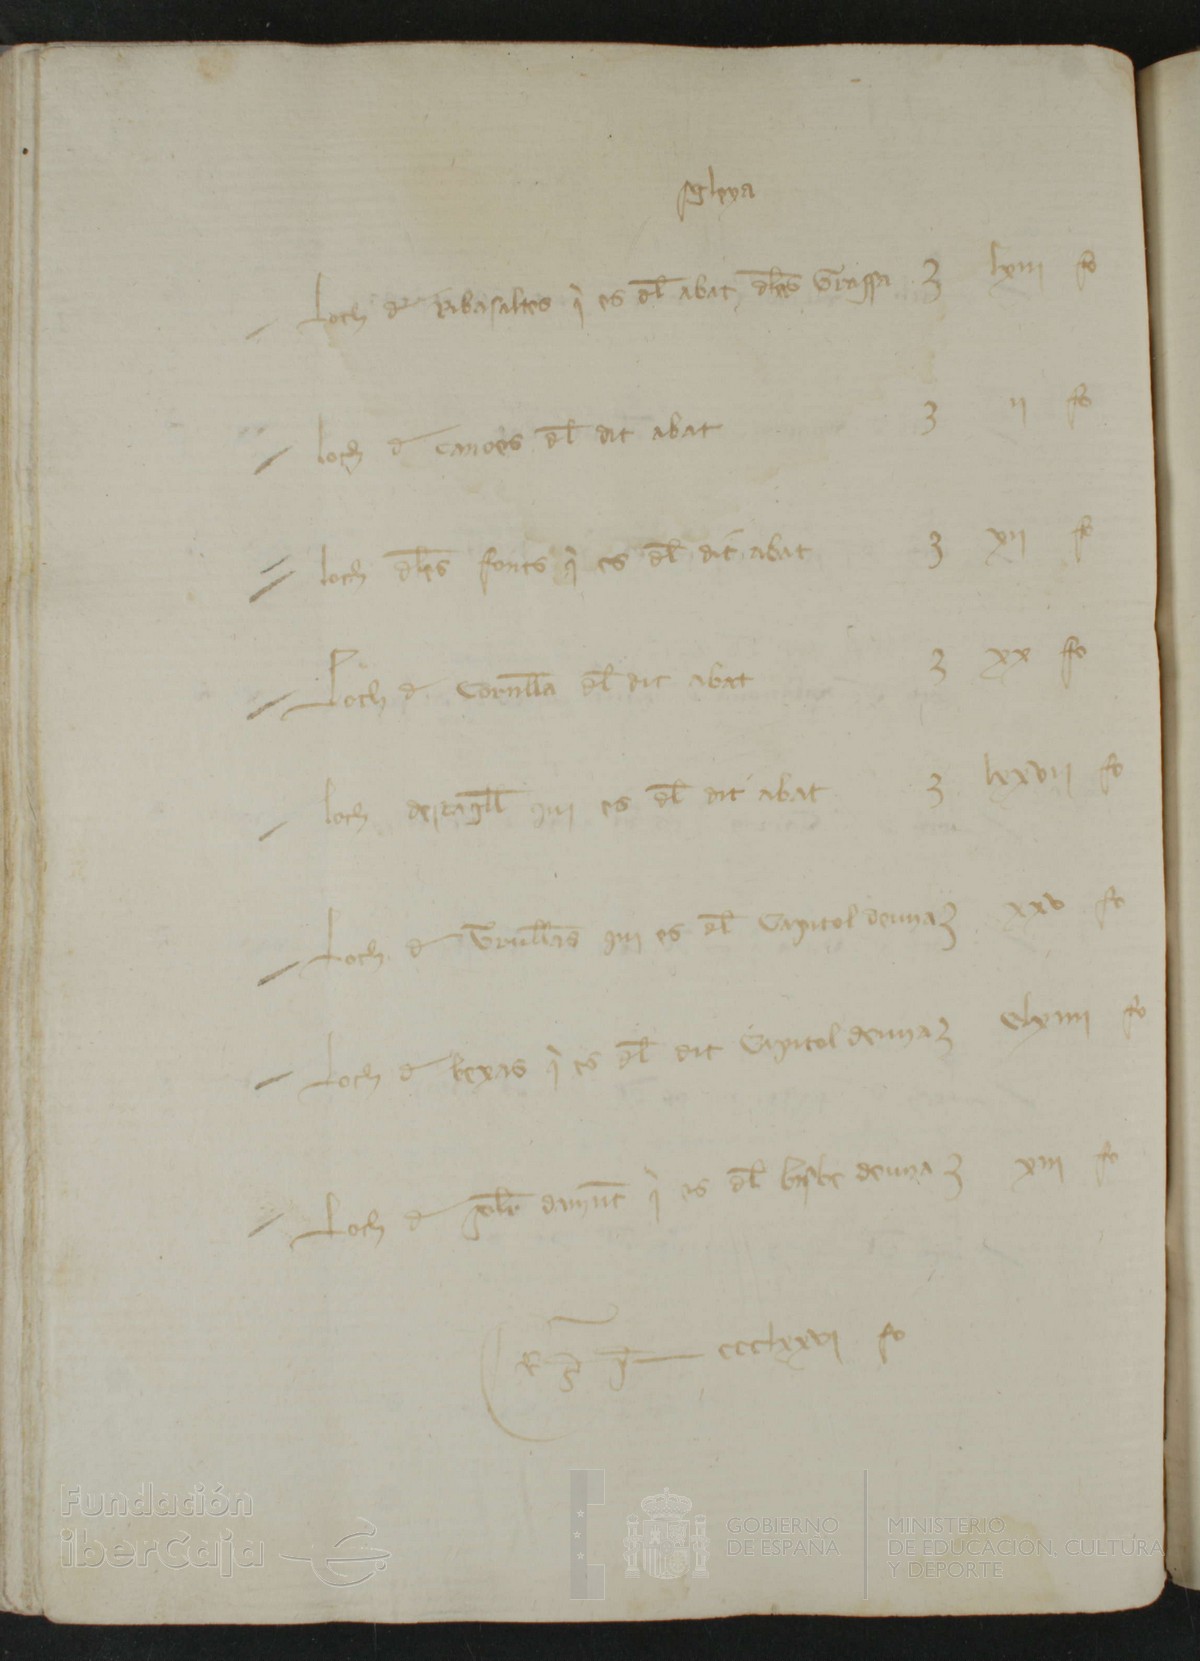 sgleya
Loch d Ribasaltes q es dl abat dles Grassa ʒ lxiii fo
loch d canoes dl dit abat ʒ ii fo
loch dles fonts q es dl dit abat ʒ xii fo
Loch d Cornlla dl dit abat ʒ xx fo
loch destagll qui es dl dit abat ʒ lxxvii fo
Loch d Trullas qui es dl Capitol deuna ʒ xxv fo
Loch d bexas q es dl dit Capitol deuna ʒ clxiiii fo
Loch d damut q es dl bisbe deuna ʒ xiii fo
ccclxxvi fo
Fundación
iberCaja
GOBIERNO
DE ESPAÑA
MINISTERIO
DE EDUCACIÓN, CULTURA
Y DEPORTE